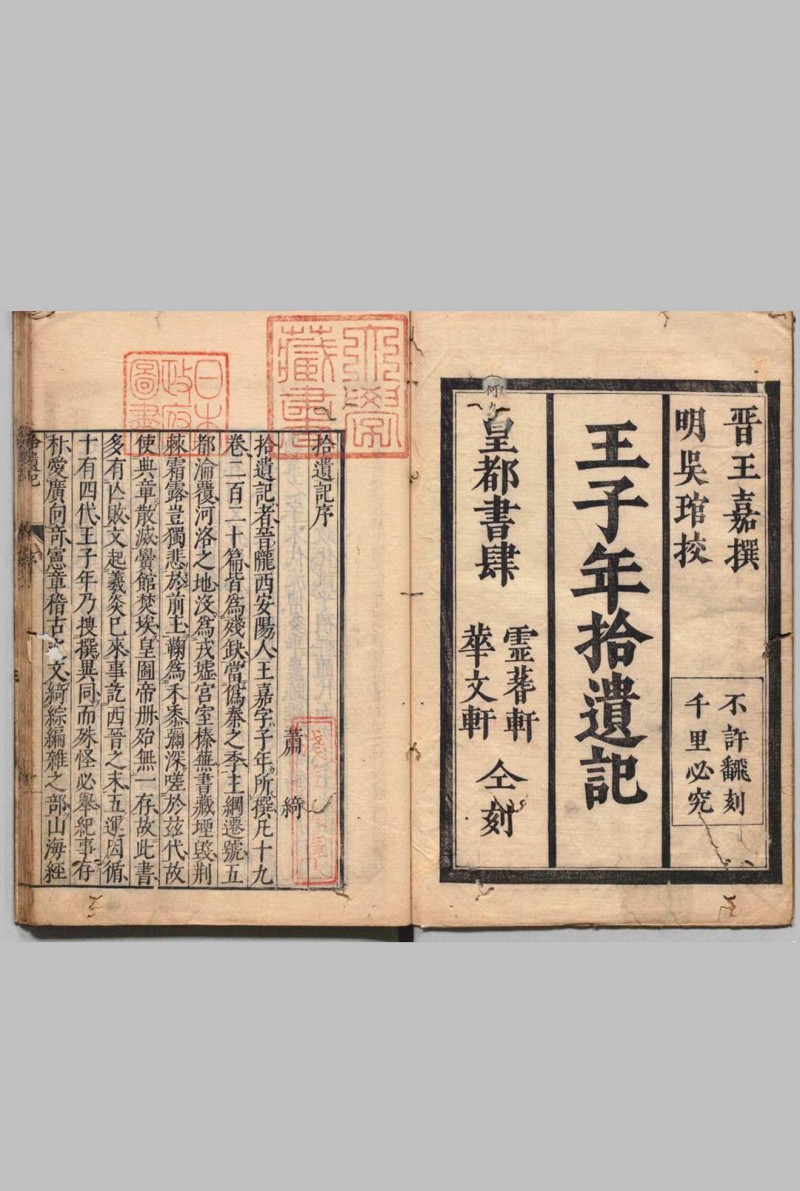 晋王嘉撰
明吳琯挍
不許飜刻
千里必究
王子年拾遺記
何
皇都書肆
霊蓍軒
華文軒
仝刻
拾遺記序
蕭綺
拾遺記者晉隴西安陽人王嘉字子年所撰凡十九
卷二百二十篇皆爲殘缺當僞秦之季王綱遷號五
都淪覆河洛之地沒爲戎墟宮室榛蕪書藏堙毀荆
棘霜露豈獨悲於前王鞠爲禾黍彌深嗟於兹代故
使典章散滅黌館焚埃皇圖帝册殆無一存故此書
多有亾敗文起羲炎已來事訖西晉之末五運因循
十有四代王子年乃搜撰異同而殊怪必舉紀事存
朴愛廣向奇憲章稽古之文綺綜編雜之部山海經
拾遺記
日本
政府
圖書
藏書